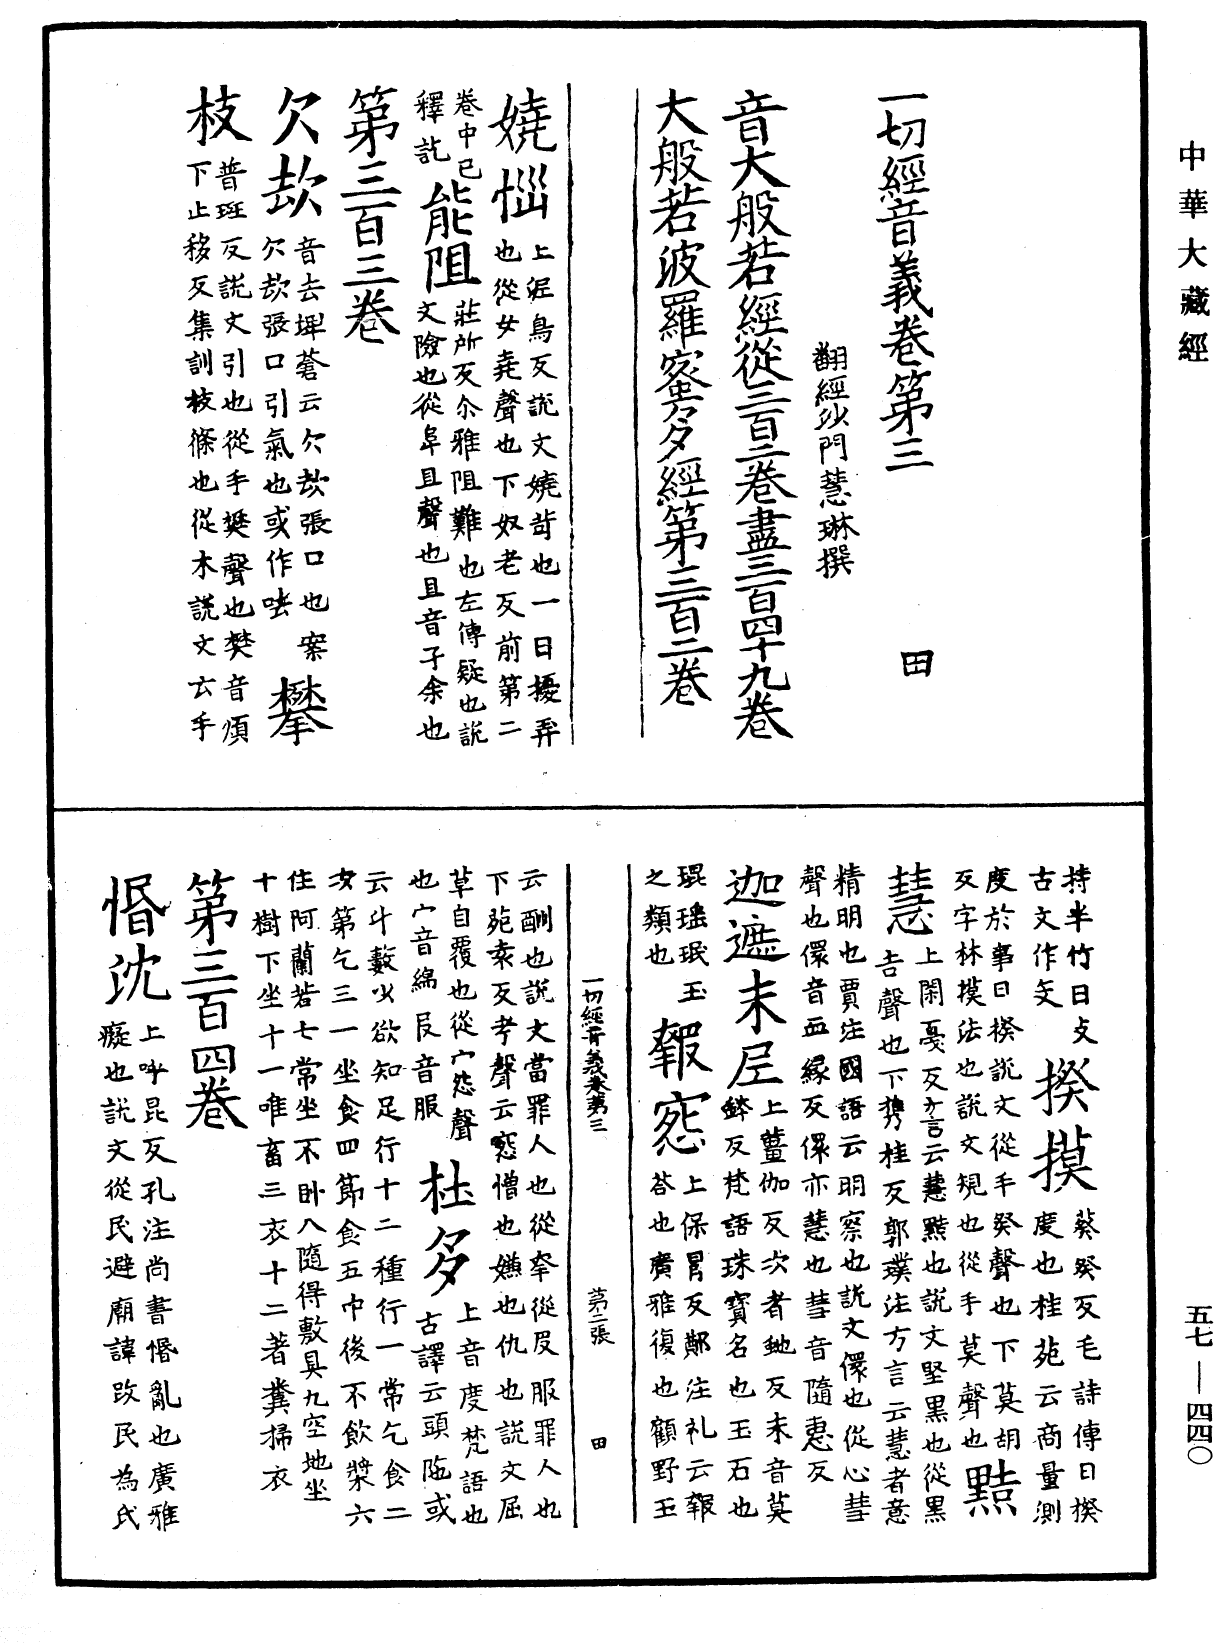 中華大藏經
一切經音義卷第三　田
翻經沙門慧琳撰
音大般若經從三百二卷盡三百四十九卷
大般若波羅蜜多經第三百二卷
嬈惱上泥鳥反說文嬈苛也一曰擾弄
也從女堯聲也下奴老反前第二
卷中已
釋訖
能阻莊所反尒雅阻難也左傳疑也說
文險也從阜且聲也且音子余也
第三百三卷
欠㰦音去埤蒼云欠㰦張口也案
欠㰦張口引氣也或作呿
攀
枝普班反說文引也從手樊聲也樊音煩
下止移反集訓枝條也從木說文云手
持半竹曰攴
古文作攴
揆摸葵癸反毛詩傳曰揆
度也桂菀云商量測
度於事曰揆說文從手癸聲也下莫胡
反字林摸法也說文規也從手莫聲也
黠
慧上閑戞反方言云慧黠也說文堅黑也從黑
吉聲也下攜桂反郭璞注方言云慧者意
精明也賈注國語云明察也說文儇也從心彗
聲也儇音血緣反儇亦慧也彗音隨惠反
迦遮末尼上薑伽反次者虵反末音莫
鉢反梵語珠寶名也玉石也
琨瑤珉玉
之類也
報㤪上保冐反鄭注礼云報
荅也廣雅復也顧野王
一切經音義卷第三　第二張　田
云酬也說文當罪人也從㚔從𠬝服罪人也
下菀袁反考聲云㤪憎也嫌也仇也說文屈
草自覆也從宀怨聲
也宀音綿𠬝音服
杜多上音度梵語也
古譯云頭陁或
云斗藪少欲知足行十二種行一常乞食二
次第乞三一坐食四節食五中後不飲漿六
住阿蘭若七常坐不卧八隨得敷具九空地坐
十樹下坐十一唯畜三衣十二著糞掃衣
第三百四卷
惛沈上呼昆反孔注尚書惛亂也廣雅
癡也說文從民避廟諱改民為氏
五七—四四〇